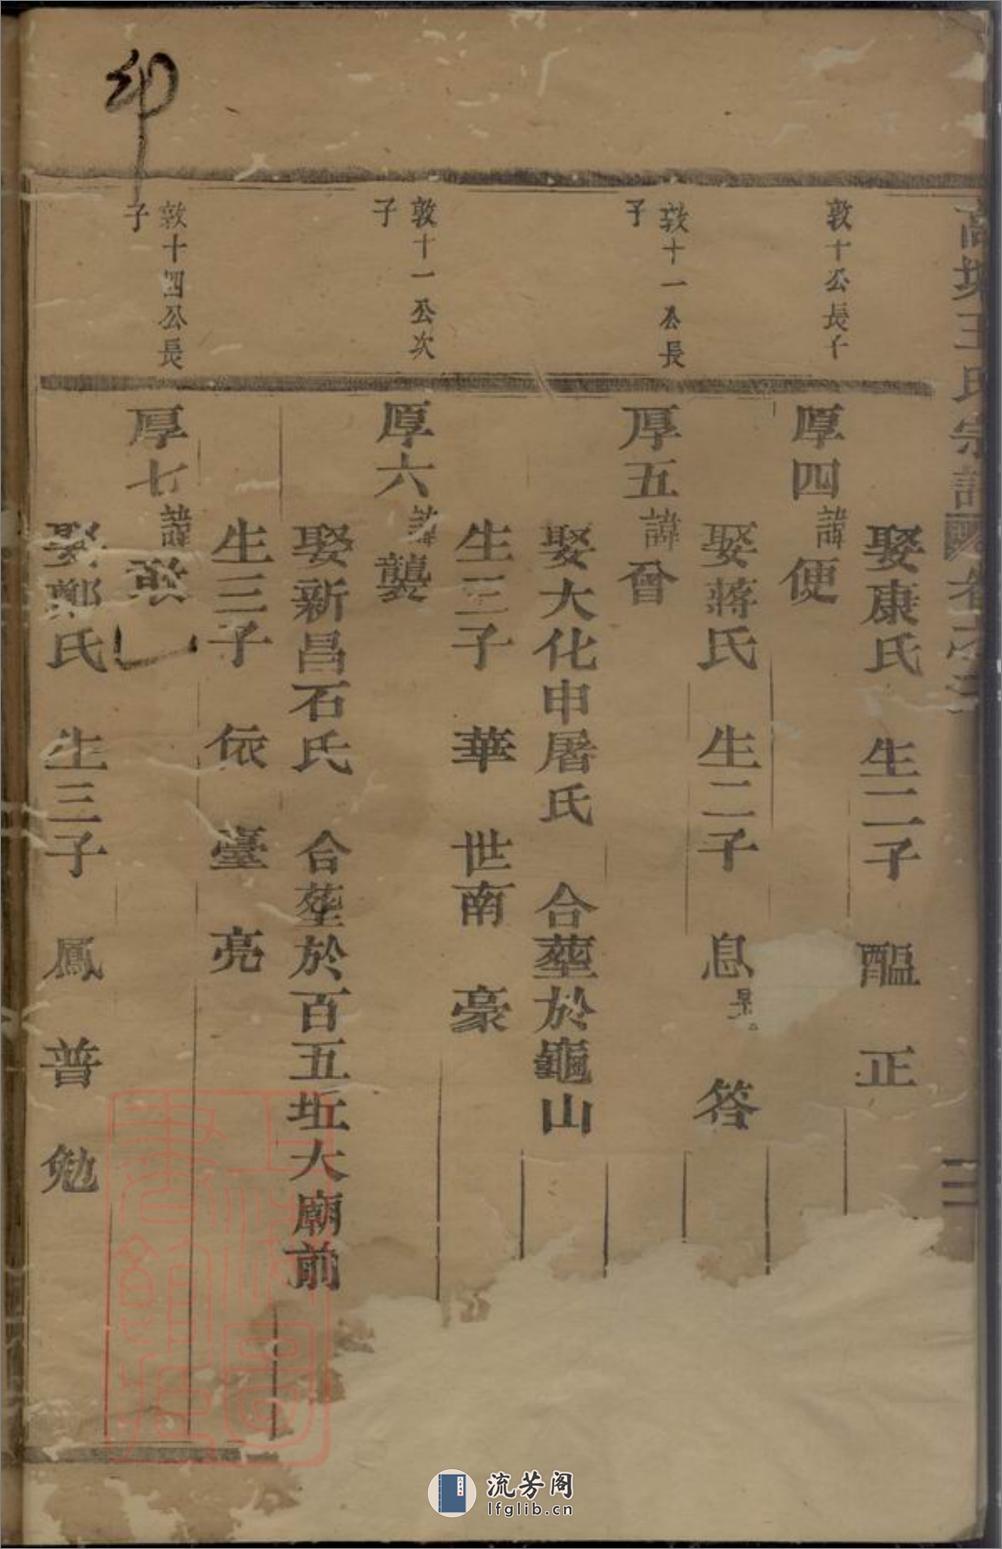 王氏宗譜
娶康氏 生二子 醞 正
敦十公長子
厚四 諱 便
娶蔣氏 生二子 息 答
敦十一公長子
厚五 諱 曾
娶大化申屠氏 合塟於龜山
生三子 華 世南 豪
敦十一公次子
厚六 諱 龔
娶新昌石氏 合塟於百五坵大廟前
生三子 依 臺 亮
敦十四公長子
厚七 諱
娶鄭氏 生三子 鳳 普 勉
印
流芳阁
lfglib.cn